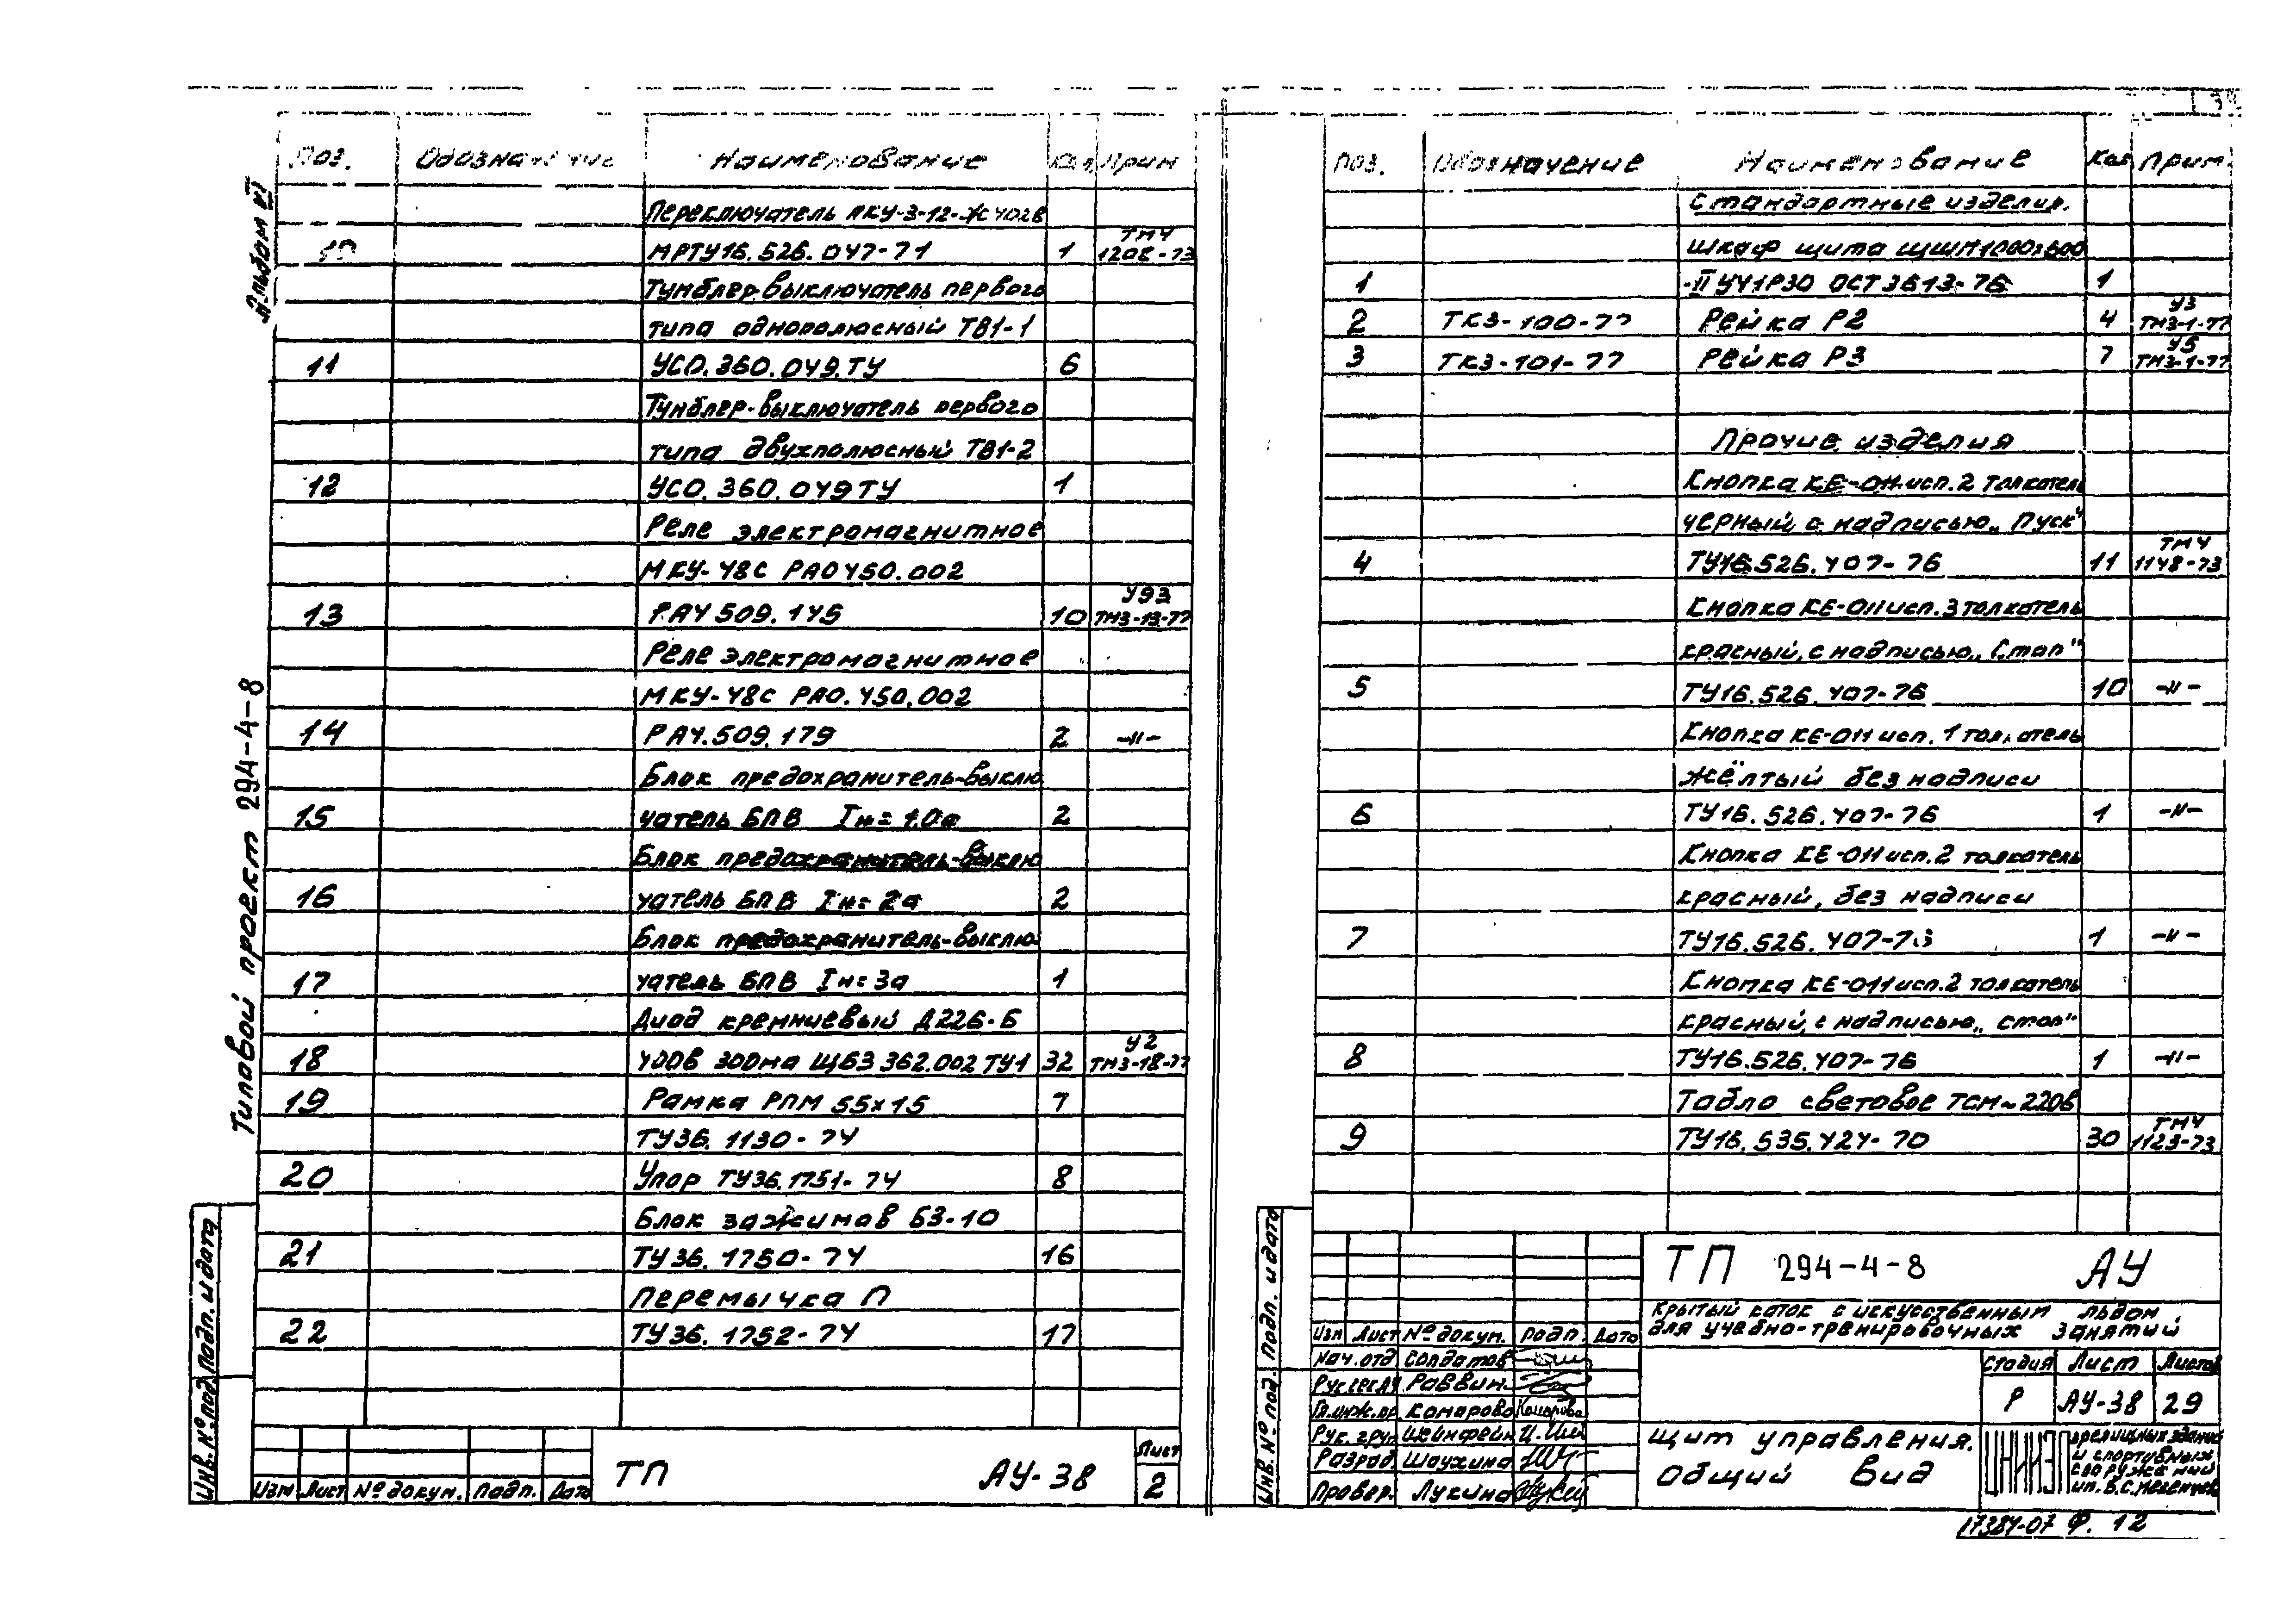 Альбом VI
Типовой проект 294-4-8
Поз. Обозначение Наименование Кол Прим
Переключатель ПКУ-3-12-
10 МРТУ16.526.047-71 1 ТМ4 1208-73
Тумблер-выключатель первого
типа однополюсный ТВ1-1
11 УСО.360.049.ТУ 6
Тумблер-выключатель первого
типа двухполюсный ТВ1-2
12 УСО.360.049ТУ 1
Реле электромагнитное
МКУ-48С РАО450.002
13 РА4509.145 10 У93 ТМ3-13-77
Реле электромагнитное
МКУ-48С РАО.450.002
14 РА4.509.179 2 -"-
Блок предохранитель-выклю
15 чатель БПВ Iн=1,0а 2
Блок предохранитель-выклю
16 чатель БПВ Iн=2а 2
Блок предохранитель-выклю
17 чатель БПВ Iн=3а 1
Диод кремниевый Д226-Б
18 400в 300ма ЩБ3362.002ТУ1 32 У2 ТМ3-18-77
19 Рамка РПМ 55х15 7
ТУ36.1130-74
20 Упор ТУ36.1751-74 8
Блок зажимов БЗ-10
21 ТУ36.1750-74 16
Перемычка П
22 ТУ36.1752-74 17
Инв. № под. Подп. и дата
Изм Лист № докум. Подп. Дата
ТП АУ-38
Лист
2
Поз. Обозначение Наименование Кол Прим.
Стандартные изделия.
Шкаф щита ЩШМ1000х600
1 -II УЧ1Р30 ОСТ3613-76 1
2 ТК3-100-77 Рейка Р2 4 У3 ТМ3-1-77
3 ТК3-101-77 Рейка Р3 7 У5 ТМ3-1-77
Прочие изделия
Кнопка КЕ-011исп.2 толкатель
черный с надписью „Пуск"
4 ТУ16.526.407-76 11 ТМ4 1148-73
Кнопка КЕ-011исп.3 толкатель
красный, с надписью „Стоп"
5 ТУ16.526.407-76 10 -"-
Кнопка КЕ-011 исп.1 толкатель
жёлтый без надписи
6 ТУ16.526.407-76 1 -"-
Кнопка КЕ-011исп.2 толкатель
красный, без надписи
7 ТУ16.526.407-76 1 -"-
Кнопка КЕ-011исп.2 толкатель
красный, с надписью „стоп"
8 ТУ16.526.407-76 1 -"-
Табло световое ТСМ~220в
9 ТУ16.535.424-70 30 ТМ4 1123-73
Инв. № под. Подп. и дата
ТП 294-4-8 АУ
Крытый каток с искусственным льдом
для учебно-тренировочных занятий
Изм Лист № докум. Подп. Дата
Нач.отд Солдатов
Раввин
Гл.инж.пр. Комарова Комарова
Рук. груп Шейнфейн
Разраб. Шаухина
Провер. Лукина
Щит управления.
Общий вид
Стадия Лист Листов
Р АУ-38 29
ЦНИИЭП
зрелищных зданий
и спортивных
сооружений
им. Б.С.Мезенцева
17384-07 Ф. 12